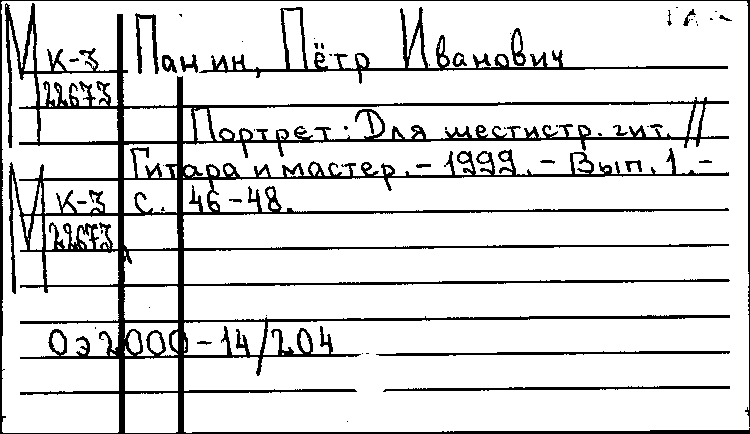 М К-3 Панин, Пётр Иванович
22673
Портрет: Для шестистр. гит. //
Гитара и мастер. – 1999. – Вып. 1. –
М К-3 с. 46-48.
22673
Оэ2000-14/204